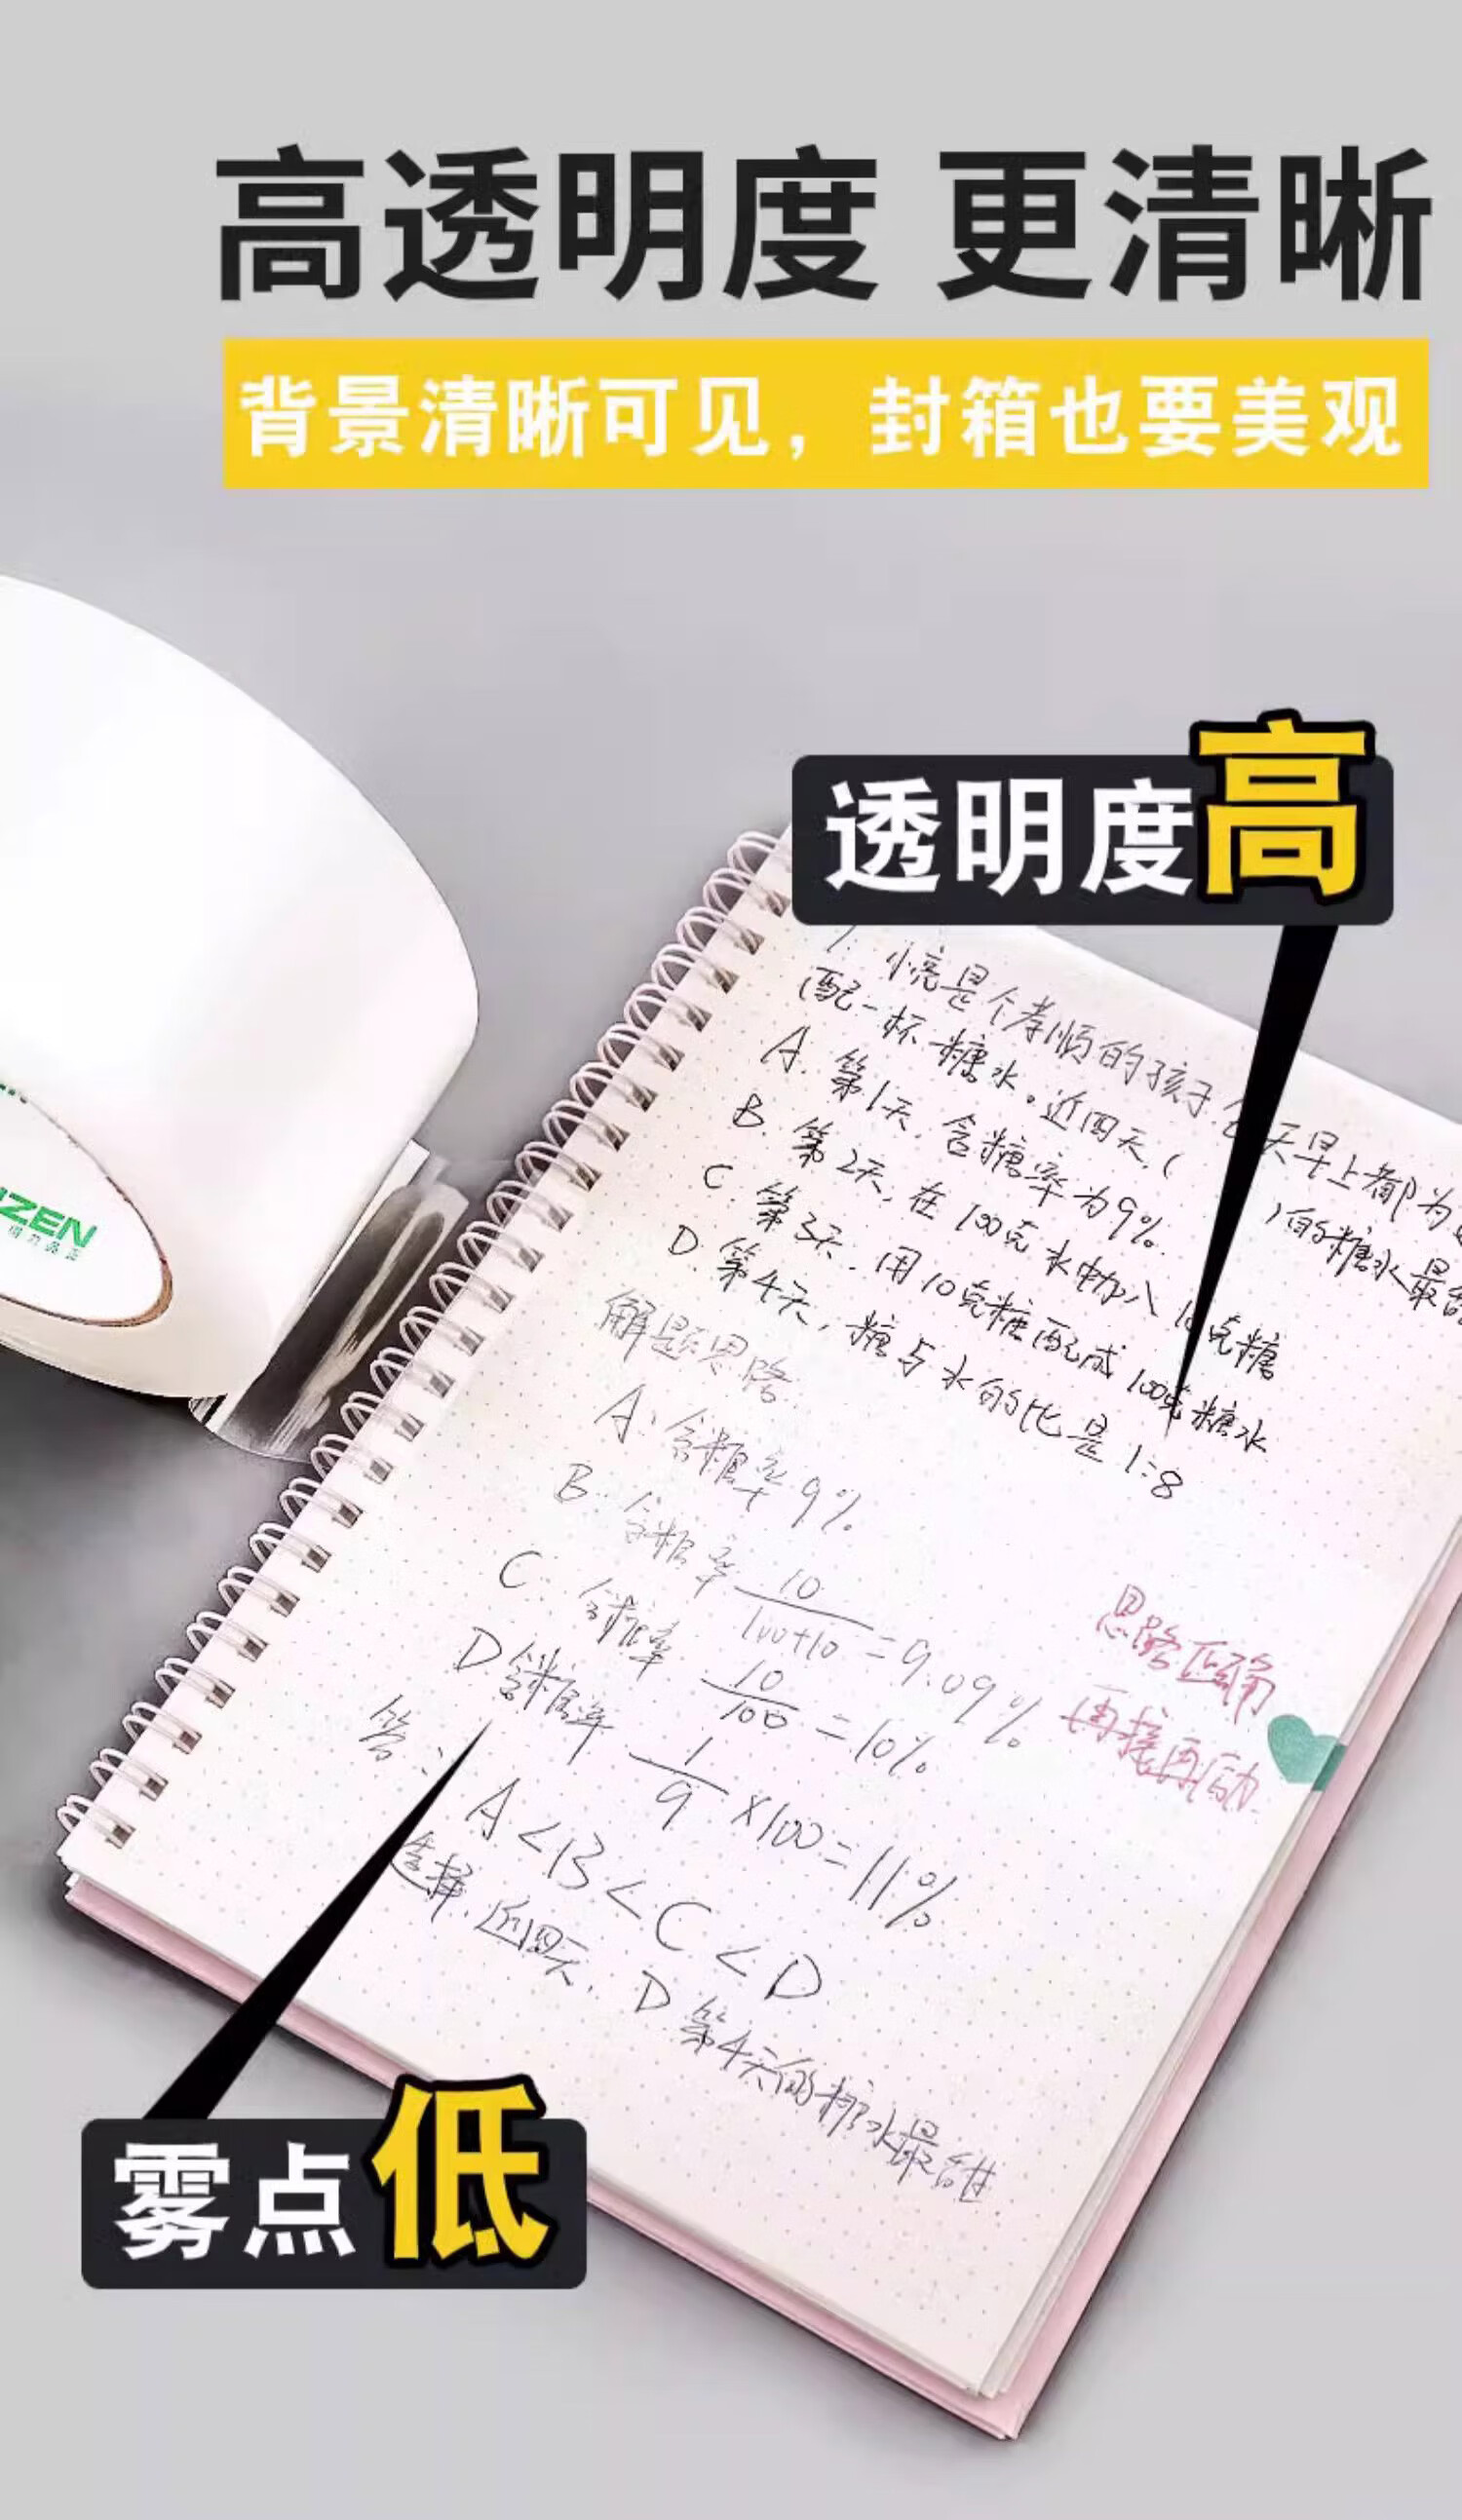 高透明度 更清晰
背景清晰可见，封箱也要美观
透明度高
1. 小亮是个孝顺的孩子 天早上都为
配一杯糖水。近四天，( )的糖水最
A. 第1天，含糖率为9%.
B. 第2天，在100克水中加入10克糖
C. 第3天，用10克糖配成100克糖水
D. 第4天，糖与水的比是1:8
ZEN
解题思路
A: 含糖率9%
B: 含糖率 10/100+10 = 9.09%
C: 含糖率 10/100 = 10%
D 含糖率 1/9 ×100 = 11%
思路正确
再接再励
答:
A<B<C<D
选择，近四天，D 第4天的糖水最甜
雾点低